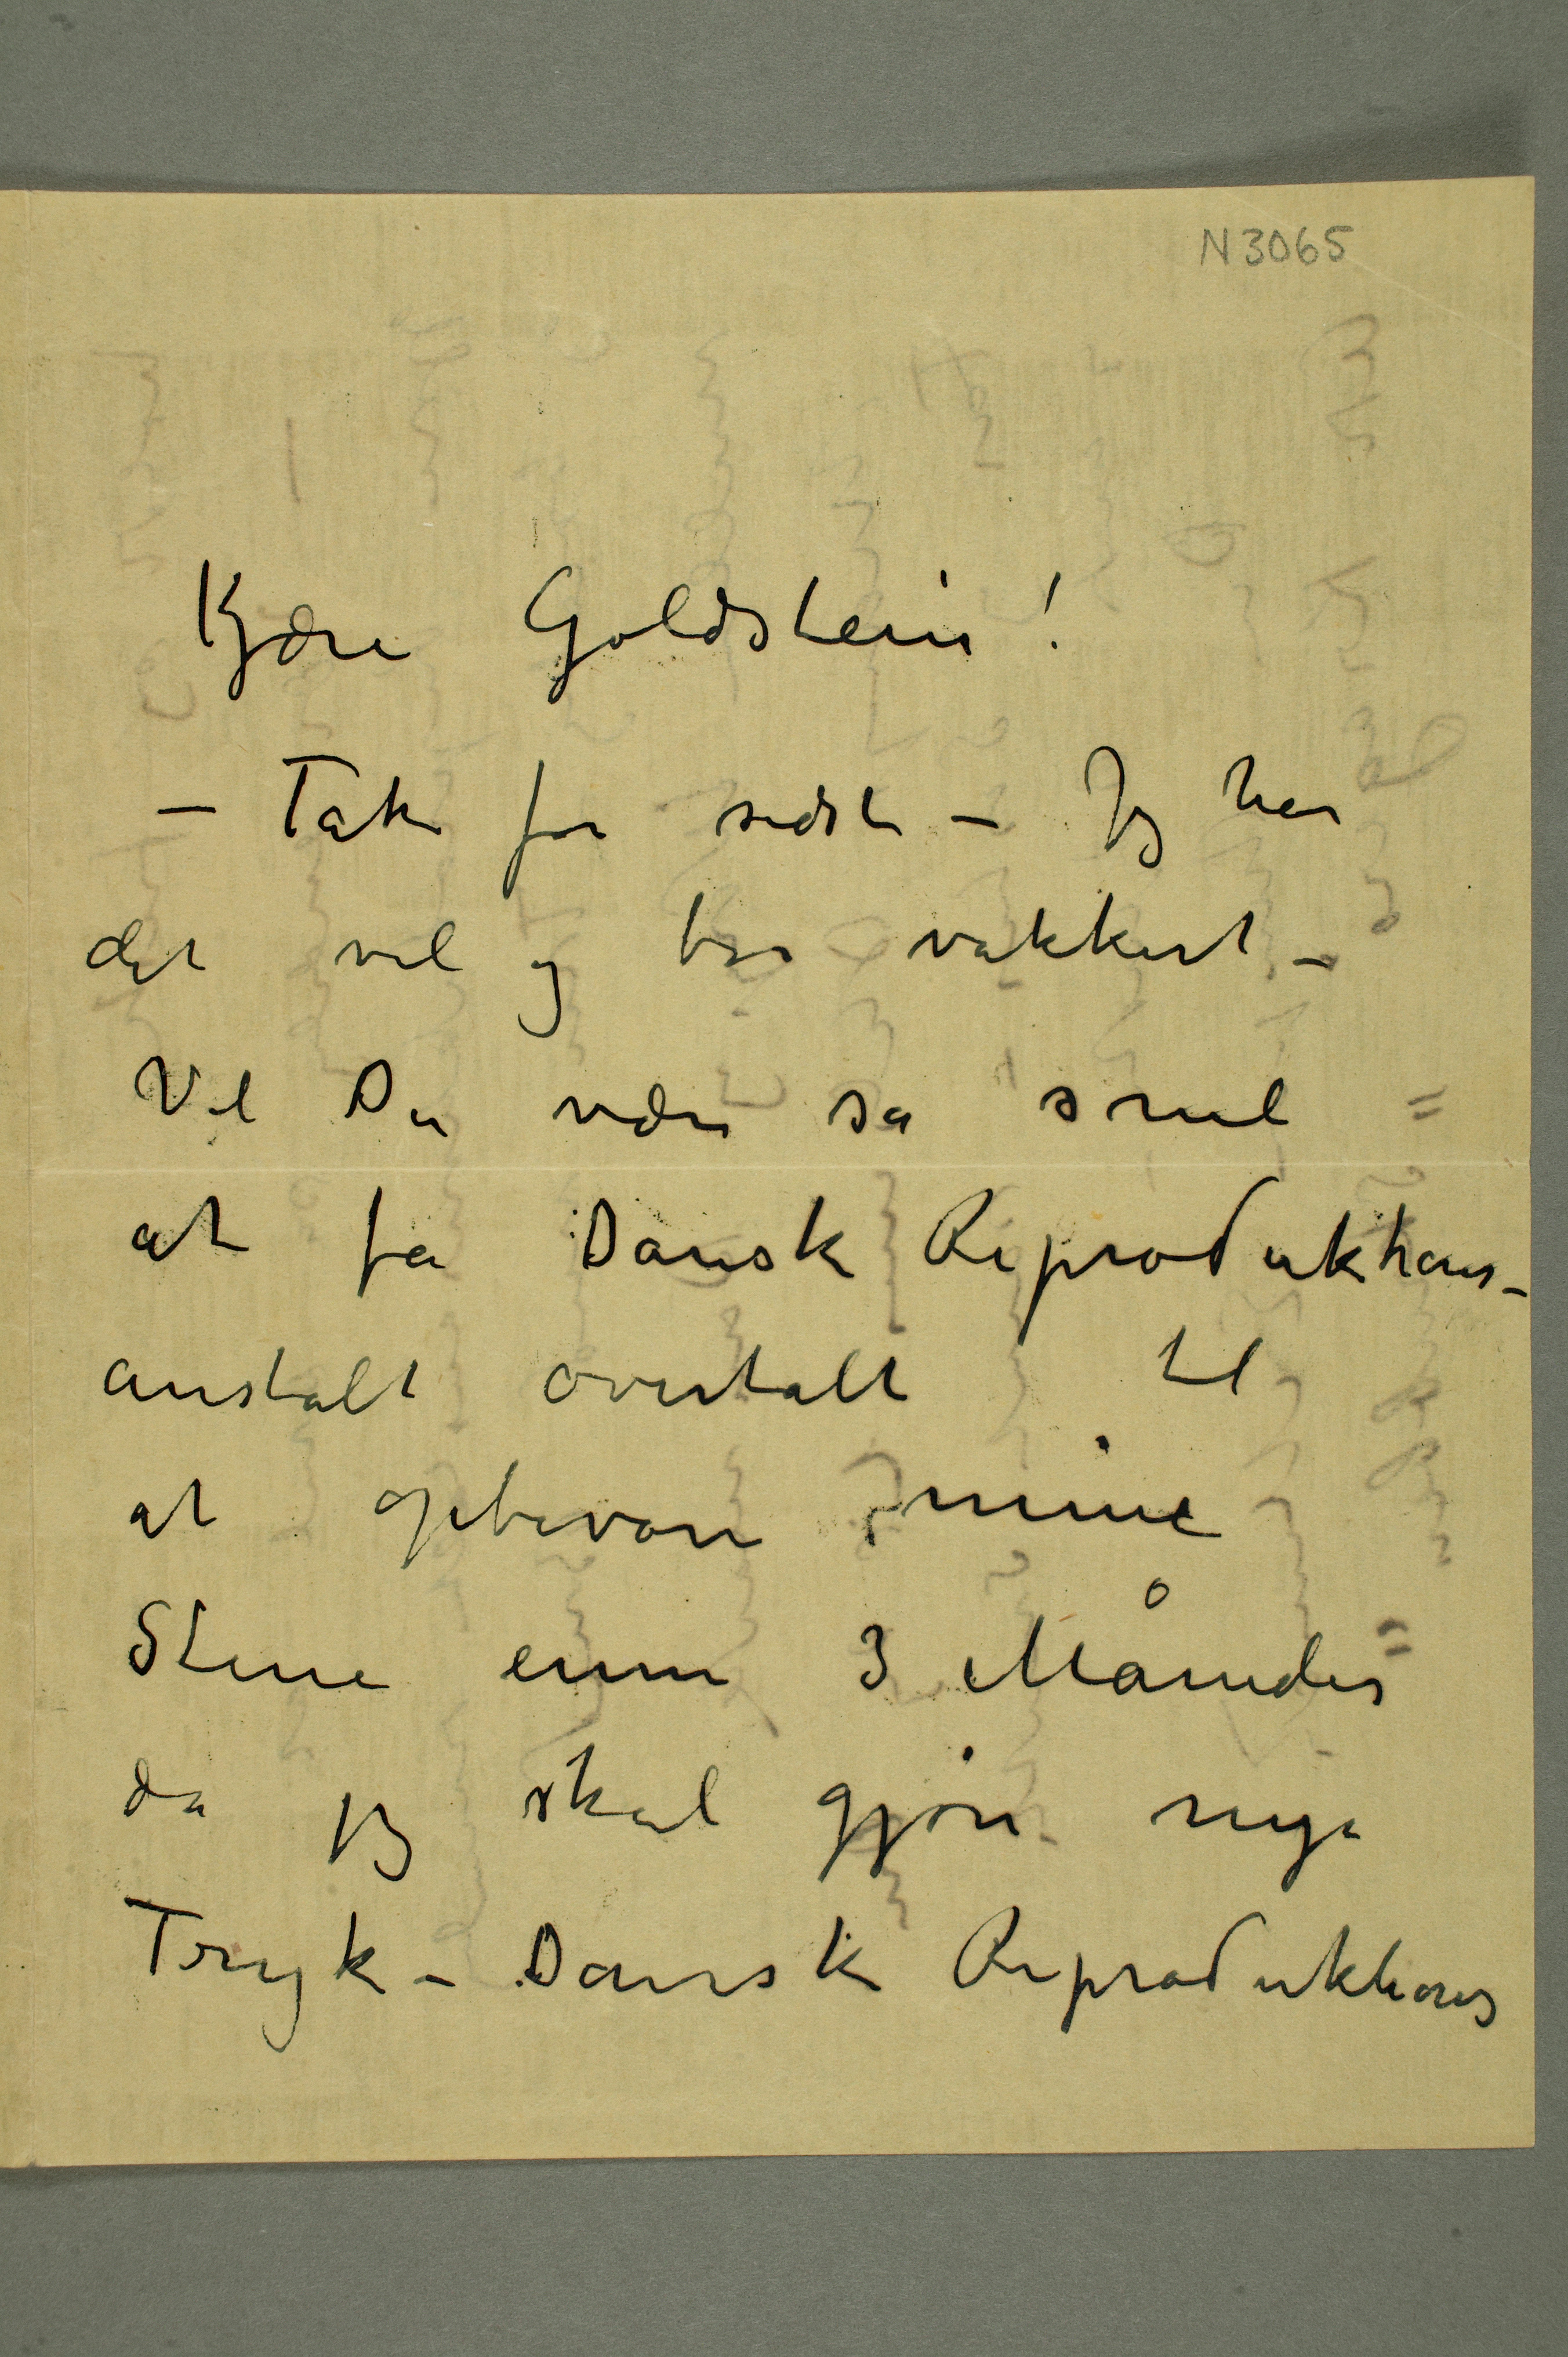 N 3065
Kjære Goldstein!
– Tak for sidst – Jeg har
det vel og bor vakkert –
Vil Du være så snil
at få Dansk Reproduktions-
anstalt overtalt til
at opbevare mine
Stene ennu 3 Måneder
da jeg skal gjøre nye
Tryk – Dansk Reproduktions